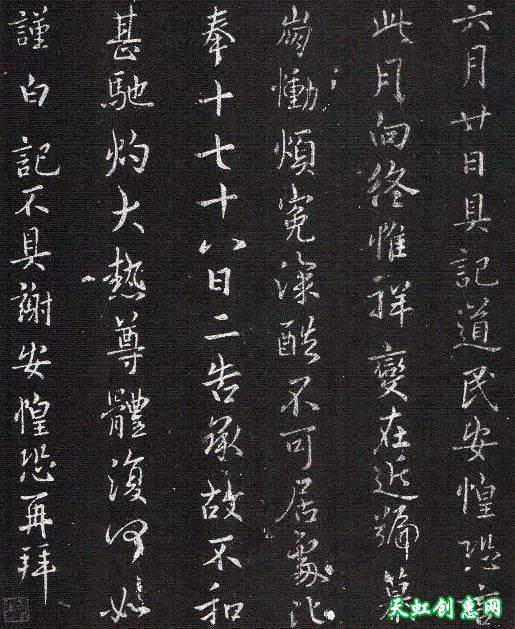 六月廿日具記道民安惶恐言
此月向終惟祥變在近號慕
崩慟煩寃深酷不可居處比
奉十七十八日二告承故不和
甚馳灼大熱尊體復何如
謹白記不具謝安惶恐再拜
天虹创惠网